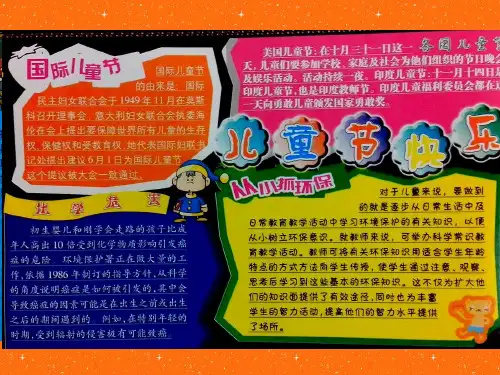 国际儿童节
国际儿童节
的由来是: 国际
民主妇女联合会于 1949 年 11 月在莫斯
科召开理事会, 意大利妇女联合会执委海
伦在会上提出要保障世界所有儿童的生存
权, 保健权和受教育权, 她代表国际妇联书
记处提出建议 6 月 1 日为国际儿童节
这个提议被大会一致通过。
各国儿童节
美国儿童节: 在十月三十一日这一
天, 儿童们要参加学校、家庭及社会为他们组织的节日晚会
及娱乐活动。活动持续一夜。印度儿童节: 十一月十四日
印度儿童节, 也是印度教师节。印度儿童福利委员会都在这
一天向勇敢儿童颁发国家勇敢奖。
儿童节快乐
化学危害
初生婴儿和刚学会走路的孩子比成
年人高出 10 倍受到化学物质影响引发癌
症的危险。环境保护署正在做大量的工
作, 依据 1986 年制订的指导方针, 从科学
的角度说明癌症是如何被引发的, 其中会
导致癌症的因素可能是在出生之前或出生
之后的期间遇到的。例如, 在特别年轻的
时期, 受到辐射的侵害极有可能致癌。
从小抓环保
对于儿童来说, 要做到
的就是逐步从日常生活中及
日常教育教学活动中学习环境保护的有关知识, 以便
从小树立环保意识。就教师来说, 可举办科学常识教
育教学活动。教师可将有关环保知识用适合学生年龄
特点的方式方法向学生传授, 使学生通过注意、观察、
思考后学习到这些基本的环保知识。这不仅为扩大他
们的知识面提供了有效途径, 同时也为丰富
学生的智力活动, 提高他们的智力水平提供
了场所。